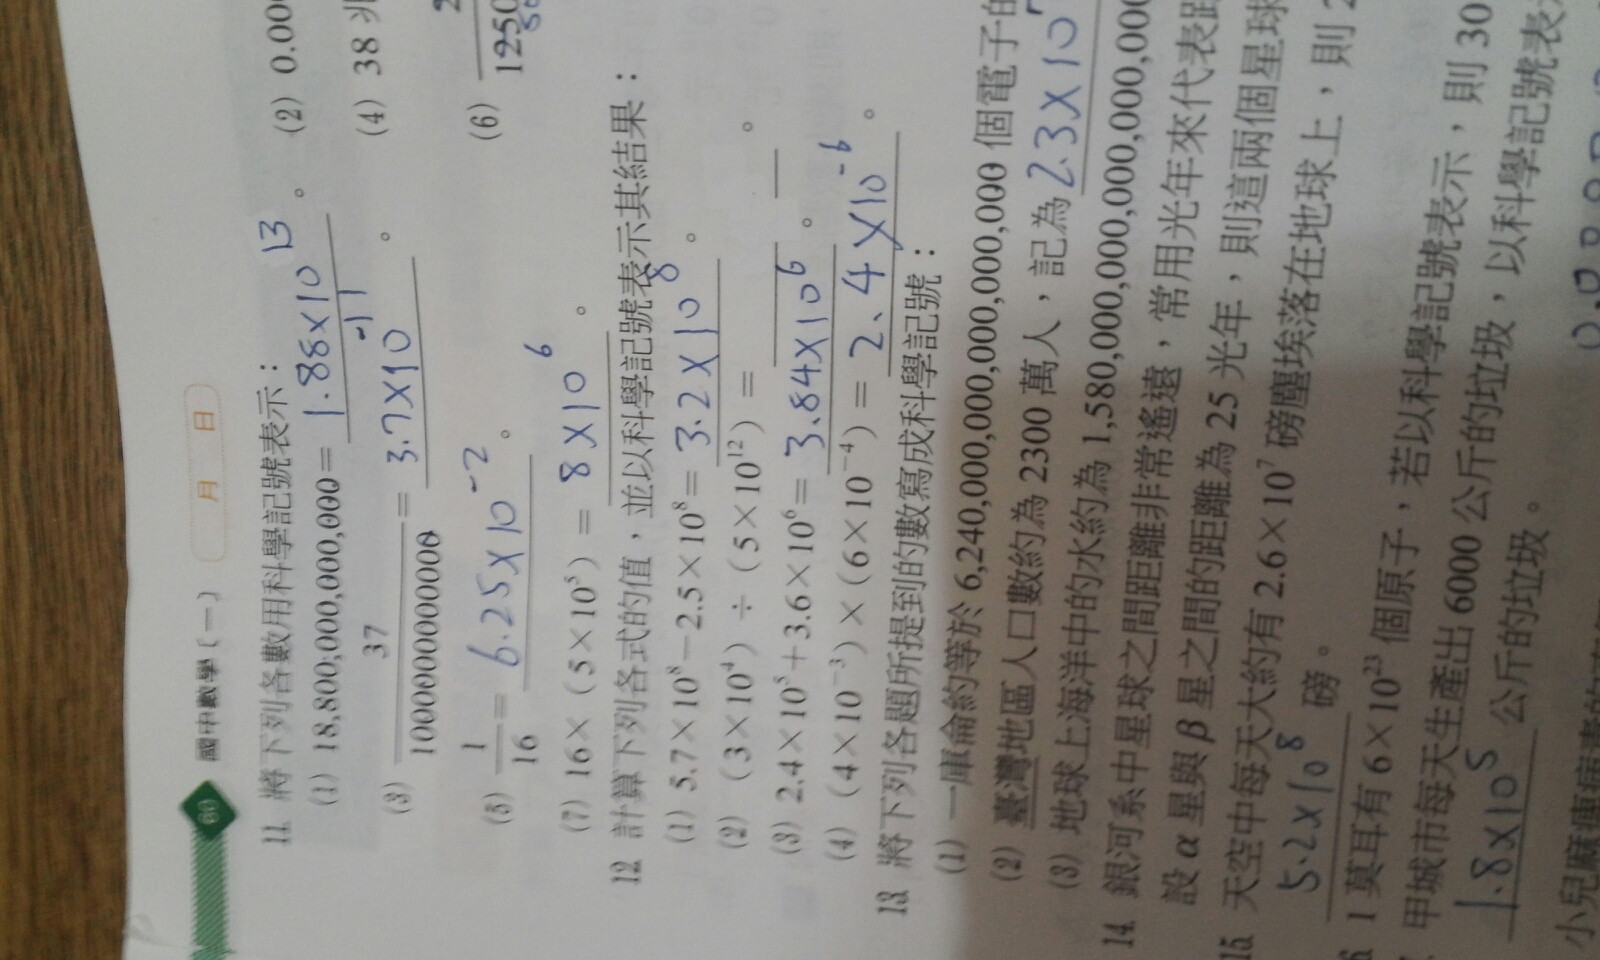 60 國中數學(一) 月 日
11. 將下列各數用科學記號表示：
(1) 18,800,000,000,000＝1.88×10^13。 (2) 0.00
(3) 37/1000000000000＝3.7×10^-11。 (4) 38 兆
(5) 1/16＝6.25×10^-2。 (6) 1250
(7) 16×(5×10^5)＝8×10^6。
12 計算下列各式的值，並以科學記號表示其結果：
(1) 5.7×10^8－2.5×10^8＝3.2×10^8。
(2) (3×10^4)÷(5×10^12)＝。
(3) 2.4×10^5＋3.6×10^6＝3.84×10^6。
(4) (4×10^-3)×(6×10^-4)＝2.4×10^-6。
13. 將下列各題所提到的數寫成科學記號：
(1) 一庫侖約等於 6,240,000,000,000,000,000 個電子的
(2) 臺灣地區人口數約為 2300 萬人，記為 2.3×10^7
(3) 地球上海洋中的水約為 1,580,000,000,000,000,000,000
14. 銀河系中星球之間距離非常遙遠，常用光年來代表距
設 α 星與 β 星之間的距離為 25 光年，則這兩個星球
15 天空中每天大約有 2.6×10^7 磅塵埃落在地球上，則 2
5.2×10^8 磅。
6 1 莫耳有 6×10^23 個原子，若以科學記號表示，則 30
甲城市每天生產出 6000 公斤的垃圾，以科學記號表示
1.8×10^5 公斤的垃圾。
小兒麻痺病毒的